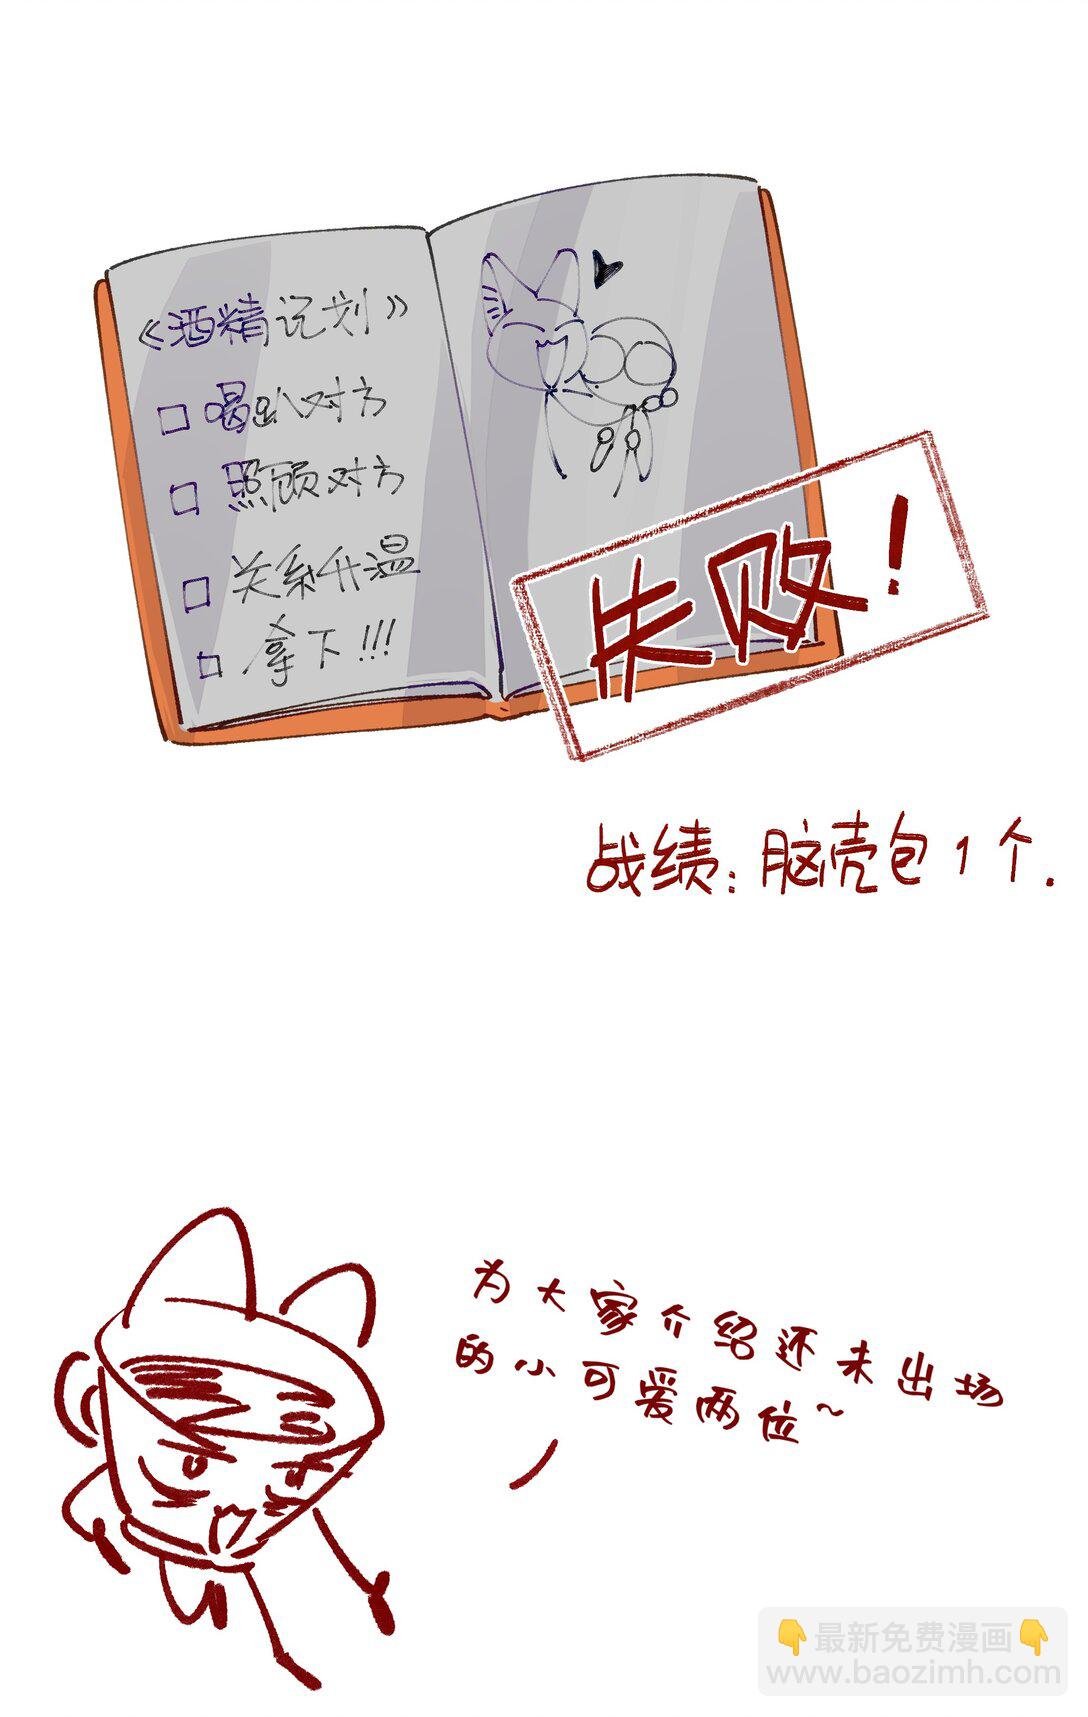 《酒精记划》
□ 喝趴对方
□ 照顾对方
□ 关系升温
□ 拿下!!!
失败!
战绩:脑壳包1个.
为大家介绍还未出场
的小可爱两位~
👇最新免费漫画👇
www.baozimh.com